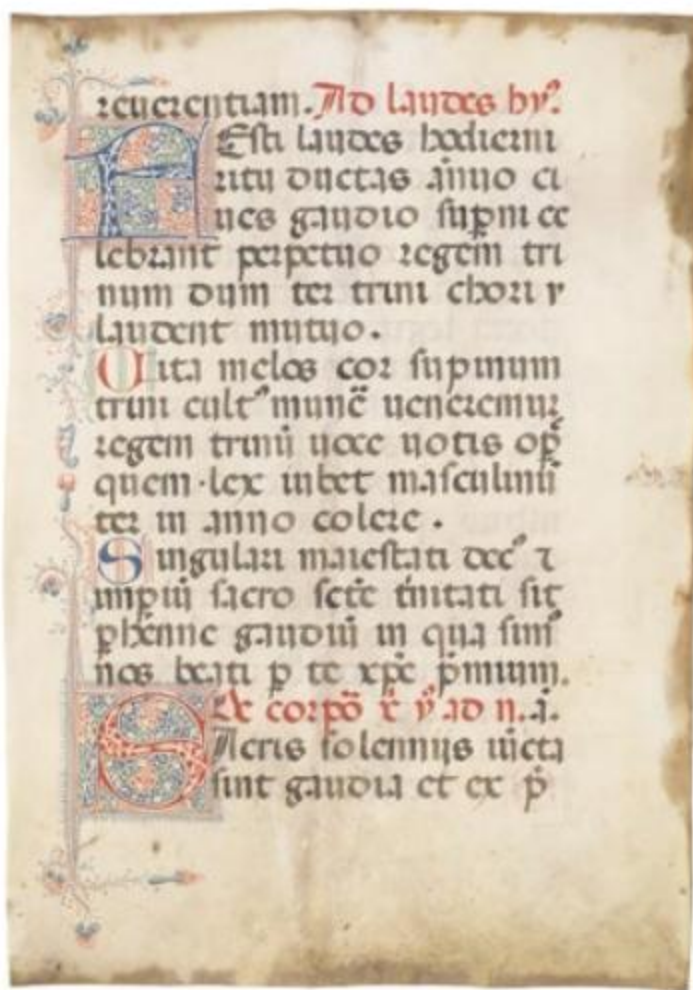 reuerentiam. Ad laudes hyꝰ.
FEsti laudes hodierni
ritu ductas anno ci
ues gaudio suꝑni ce
lebrant perpetuo regem tri
num dum ter trini chori ꝩ
laudent mutuo.
Uita melos cor supinum
trini cultꝰ munē ueneremur
regem trinū uoce uotis oꝑ
quem lex iubet masculinū
ter in anno colere.
Singulari maiestati decꝰ ⁊
impiū sacro sctē tⁱnitati sit
ꝑhēnne gaudiū in qua simꝰ
nos beati ꝑ te xp̄e p̄mium.
De corpō x̄ ẏ ad n. .i.
SAcris solennijs iūcta
sint gaudia et ex p̄